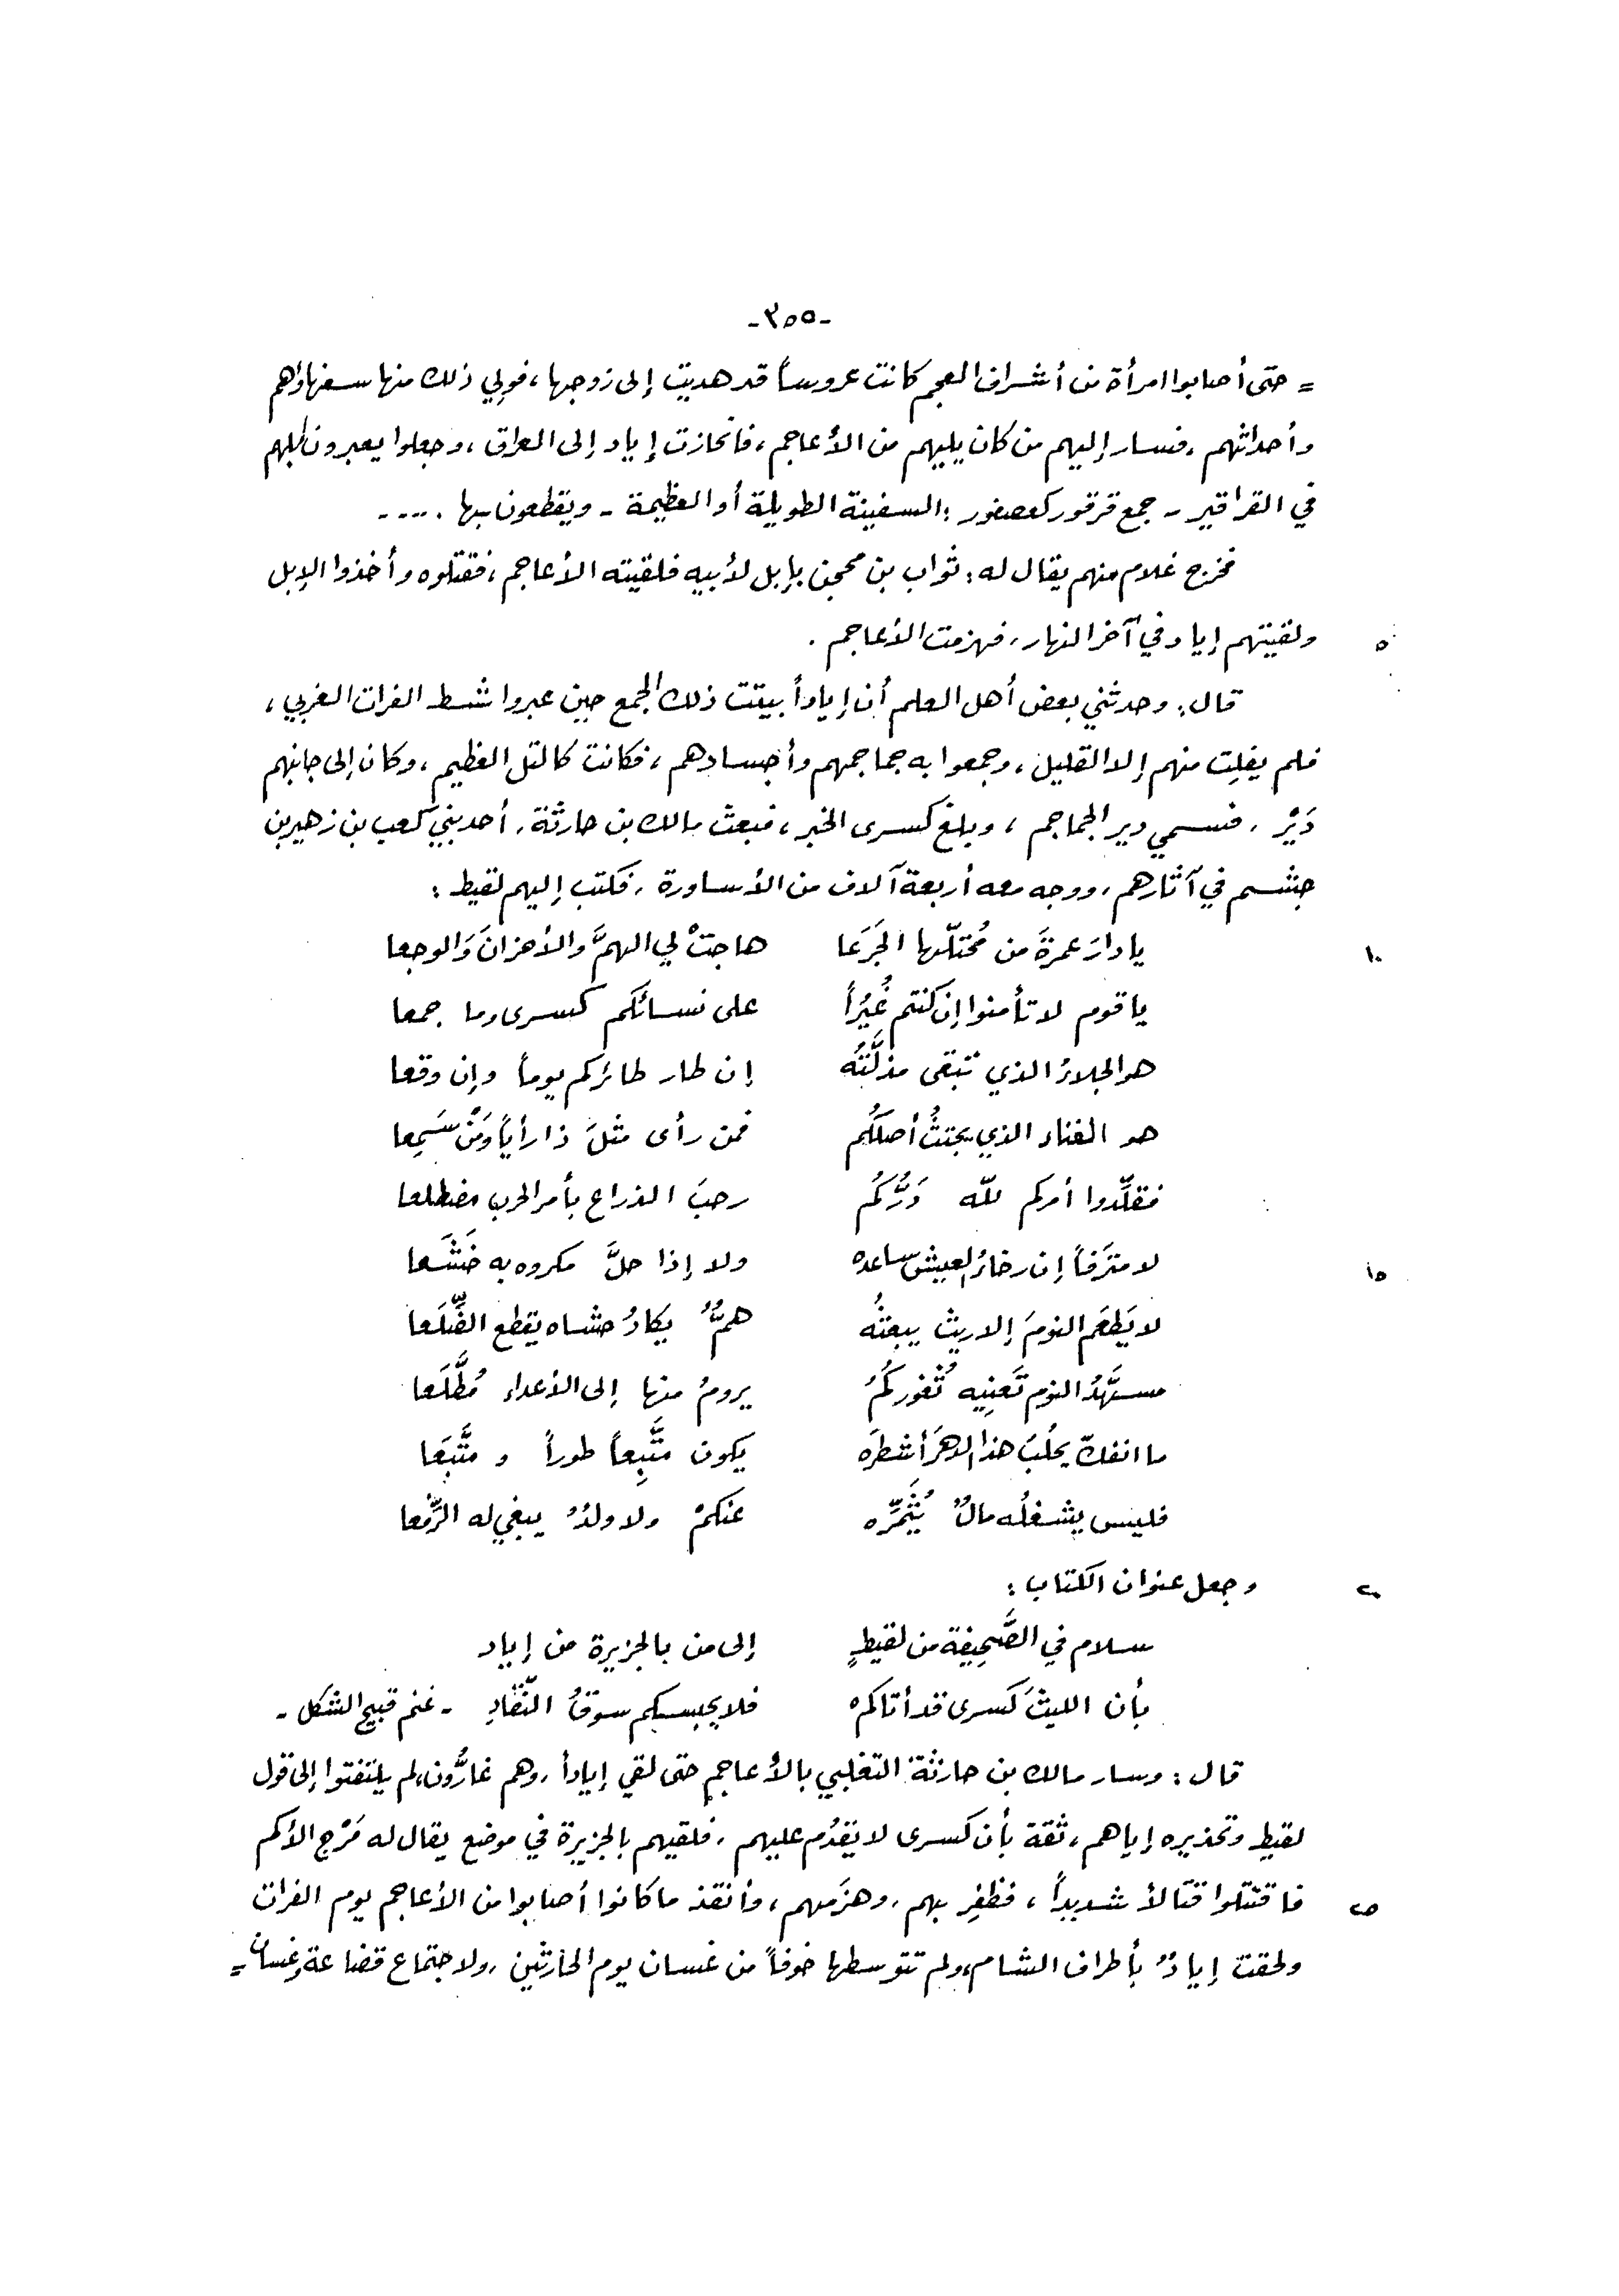 -٣٥٥-
= حتى أصابوا امرأة من أشراف العجم كانت عروساً قد هديت إلى زوجها، فولي ذلك منها سفهاؤهم
وأحداثهم، فسار إليهم من كان يليهم من الأعاجم، فانحازت إياد إلى العراق، وجعلوا يعبرون إبلهم
في القراقير - جمع قرقور كعصفور: السفينة الطويلة أو العظيمة - ويقطعون بها. ....
فخرج غلام منهم يقال له: ثواب بن محجن بإبل لأبيه فلقيته الأعاجم، فقتلوه وأخذوا الإبل
٥ ولقيتهم إياد في آخر النهار، فهزمت الأعاجم.
قال: وحدثني بعض أهل العلم أن إياداً بيتت ذلك الجمع حين عبروا شط الفرات الغربي،
فلم يفلِت منهم إلا القليل، وجمعوا به جماجمهم وأجسادهم، فكانت كالتل العظيم، وكان إلى جانبهم
دَيْر، فسمي دير الجماجم، وبلغ كسرى الخبر، فبعث مالك بن حارثة، أحد بني كعب بن زهير بن
جشم في آثارهم، ووجه معه أربعة آلاف من الأساورة، فكتب إليهم لقيط:
١٠ يا دارَ عمرةَ من مُحتلّها الجَرَعا هاجتْ لي الهمَّ والأحزانَ وَالوجعا
يا قوم لا تأمنوا إن كنتم غُيُراً على نسائكم كسرى وما جمعا
هو الجلاءُ الذي تبقى مذلَّتُه إن طار طائركم يوماً وإن وقعا
هو الفناء الذي يجتثُّ أصلَكُم فمن رأى مثلَ ذا رأياً وَمَنْ سَمِعا
فقلِّدوا أمركم للّه دَرُّكُم رحبَ الذراع بأمر الحرب مضطلعا
١٥ لا مترَفاً إن رخاءُ العيش ساعده ولا إذا حلَّ مكروه به خَشَعا
لا يَطعَم النومَ إلا ريث يبعثُه همٌّ يكادُ حشاه يقطع الضِّلَعا
مسهَّدُ النوم تَعنِيه ثُغوركُمُ يرومُ منها إلى الأعداء مُطَّلَعا
ما انفكّ يحلُبُ هذا الدهرَ أشطرَه يكون متَّبِعاً طوراً و متَّبَعا
فليس يشغلُه مالٌ يُثَمِّره عنكمْ ولا ولدٌ يبغي له الرِّفعا
٢٠ وجعل عنوان الكتاب:
سلام في الصَّحِيفة من لقيطٍ إلى من بالجزيرة من إياد
بأن الليثَ كسرى قد أتاكم فلا يحبسكم سوقُ النِّقادِ - غنم قبيح الشكل -
قال: وسار مالك بن حارثة التغلبي بالأعاجم حتى لقي إياداً، وهم غارُّون، لم يلتفتوا إلى قول
لقيط وتحذيره إياهم، ثقة بأن كسرى لا يقدُم عليهم، فلقيهم بالجزيرة في موضع يقال له مَرْج الأكم
٢٥ فاقتتلوا قتالاً شديداً، فظفِر بهم، وهزَمهم، وأنقذ ما كانوا أصابوا من الأعاجم يوم الفرات
ولحقت إيادٌ بأطراف الشام، ولم تتوسطها خوفاً من غسان يوم الحارثين، ولاجتماع قضاعة وغسان =